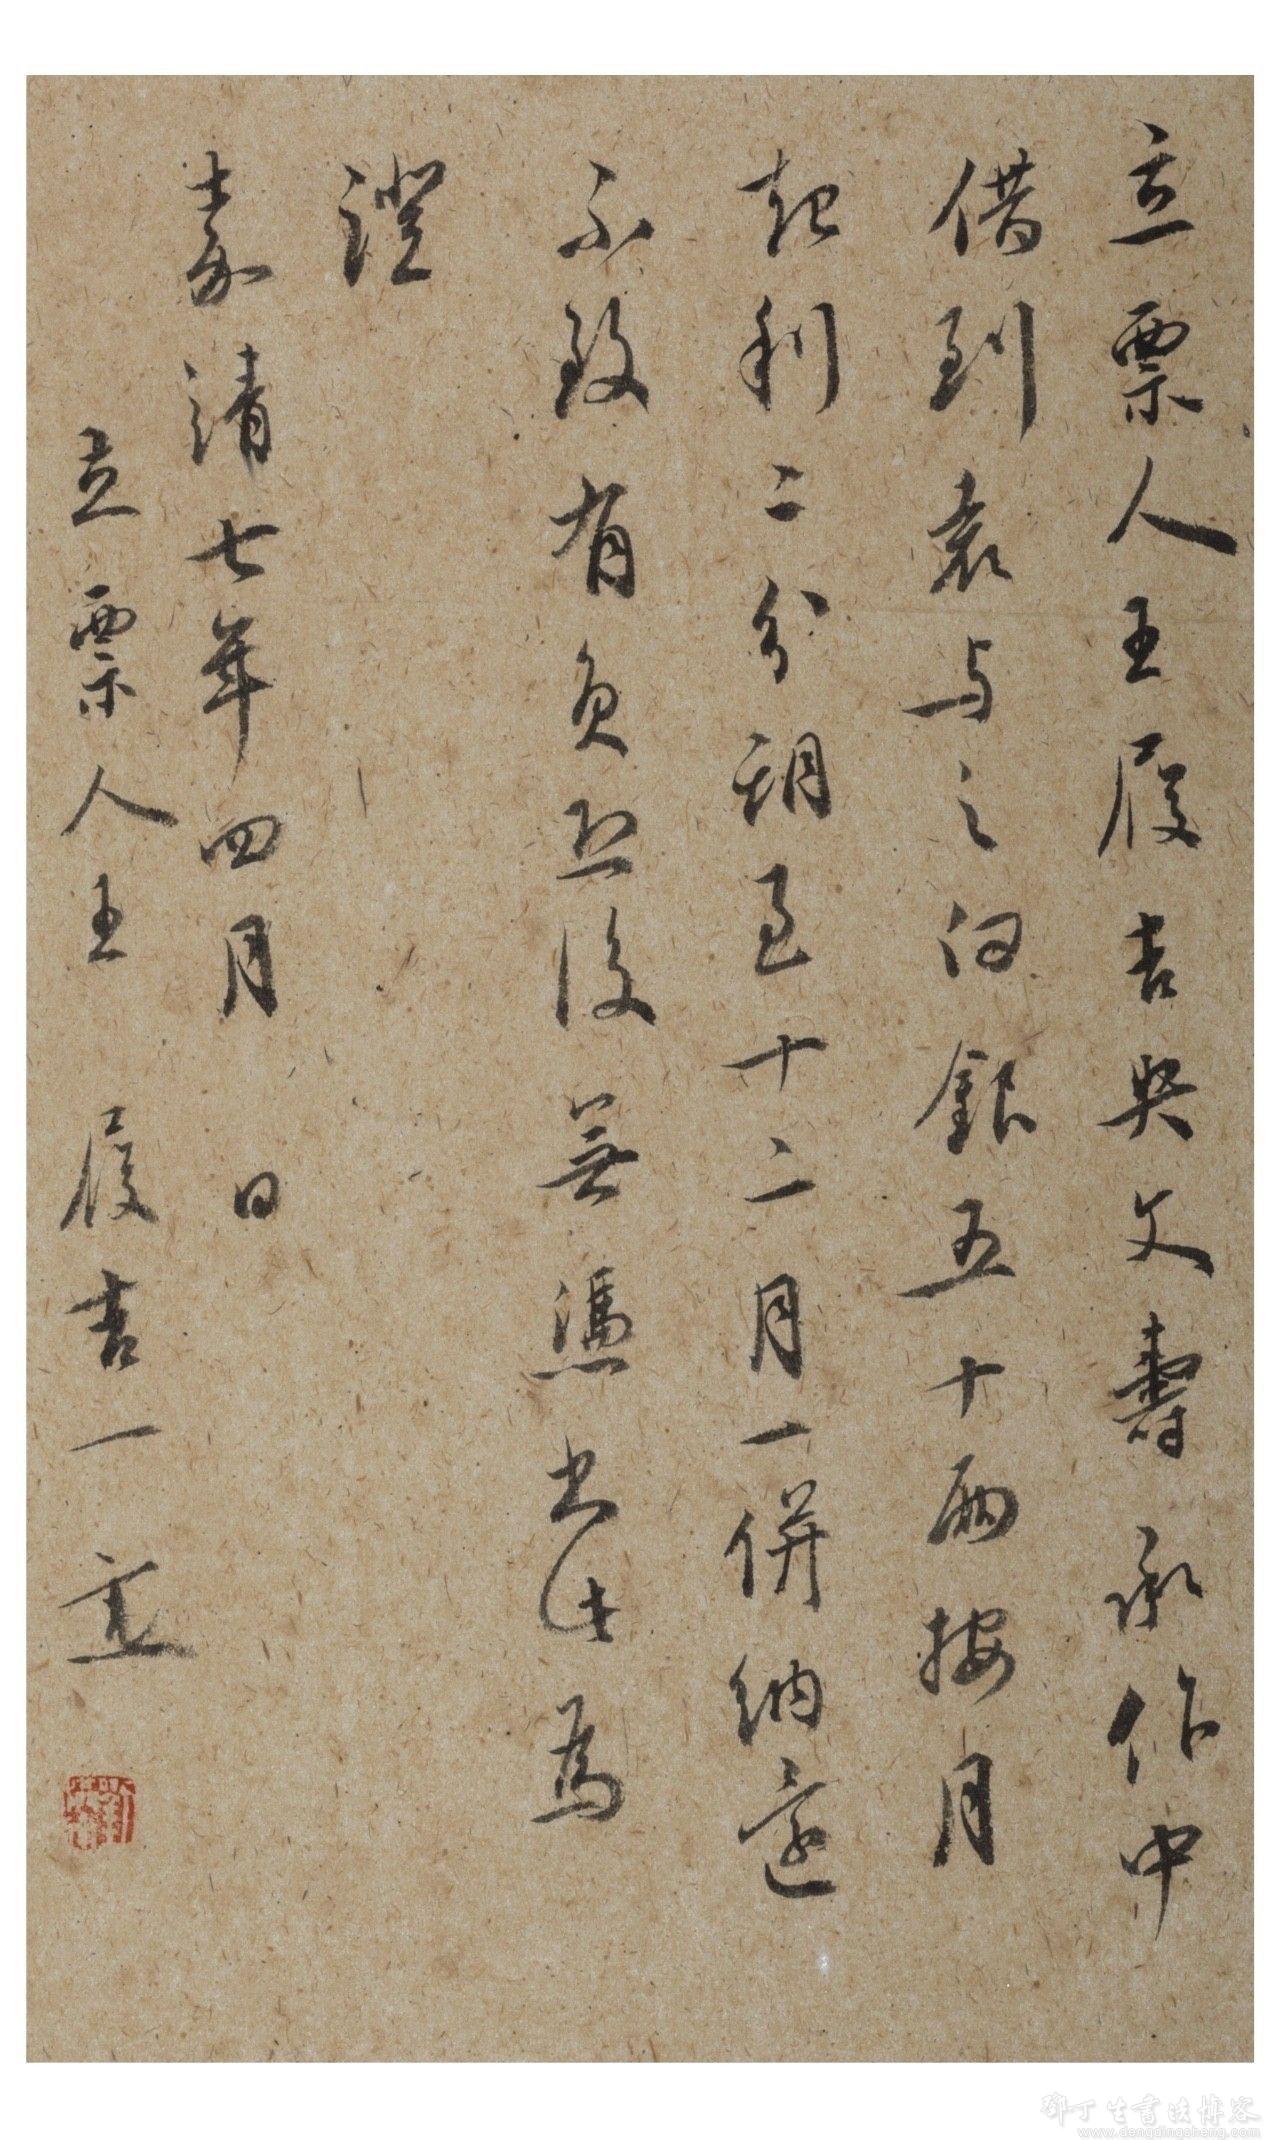 立票人王履吉央文壽承作中
借到袁与之白銀五十兩按月
起利二分期至十二月一併納還
不致有負恐後無憑書此為
證
嘉靖七年四月 日
立票人王履吉一立
鄧丁生書法博客
www.dengdingsheng.com